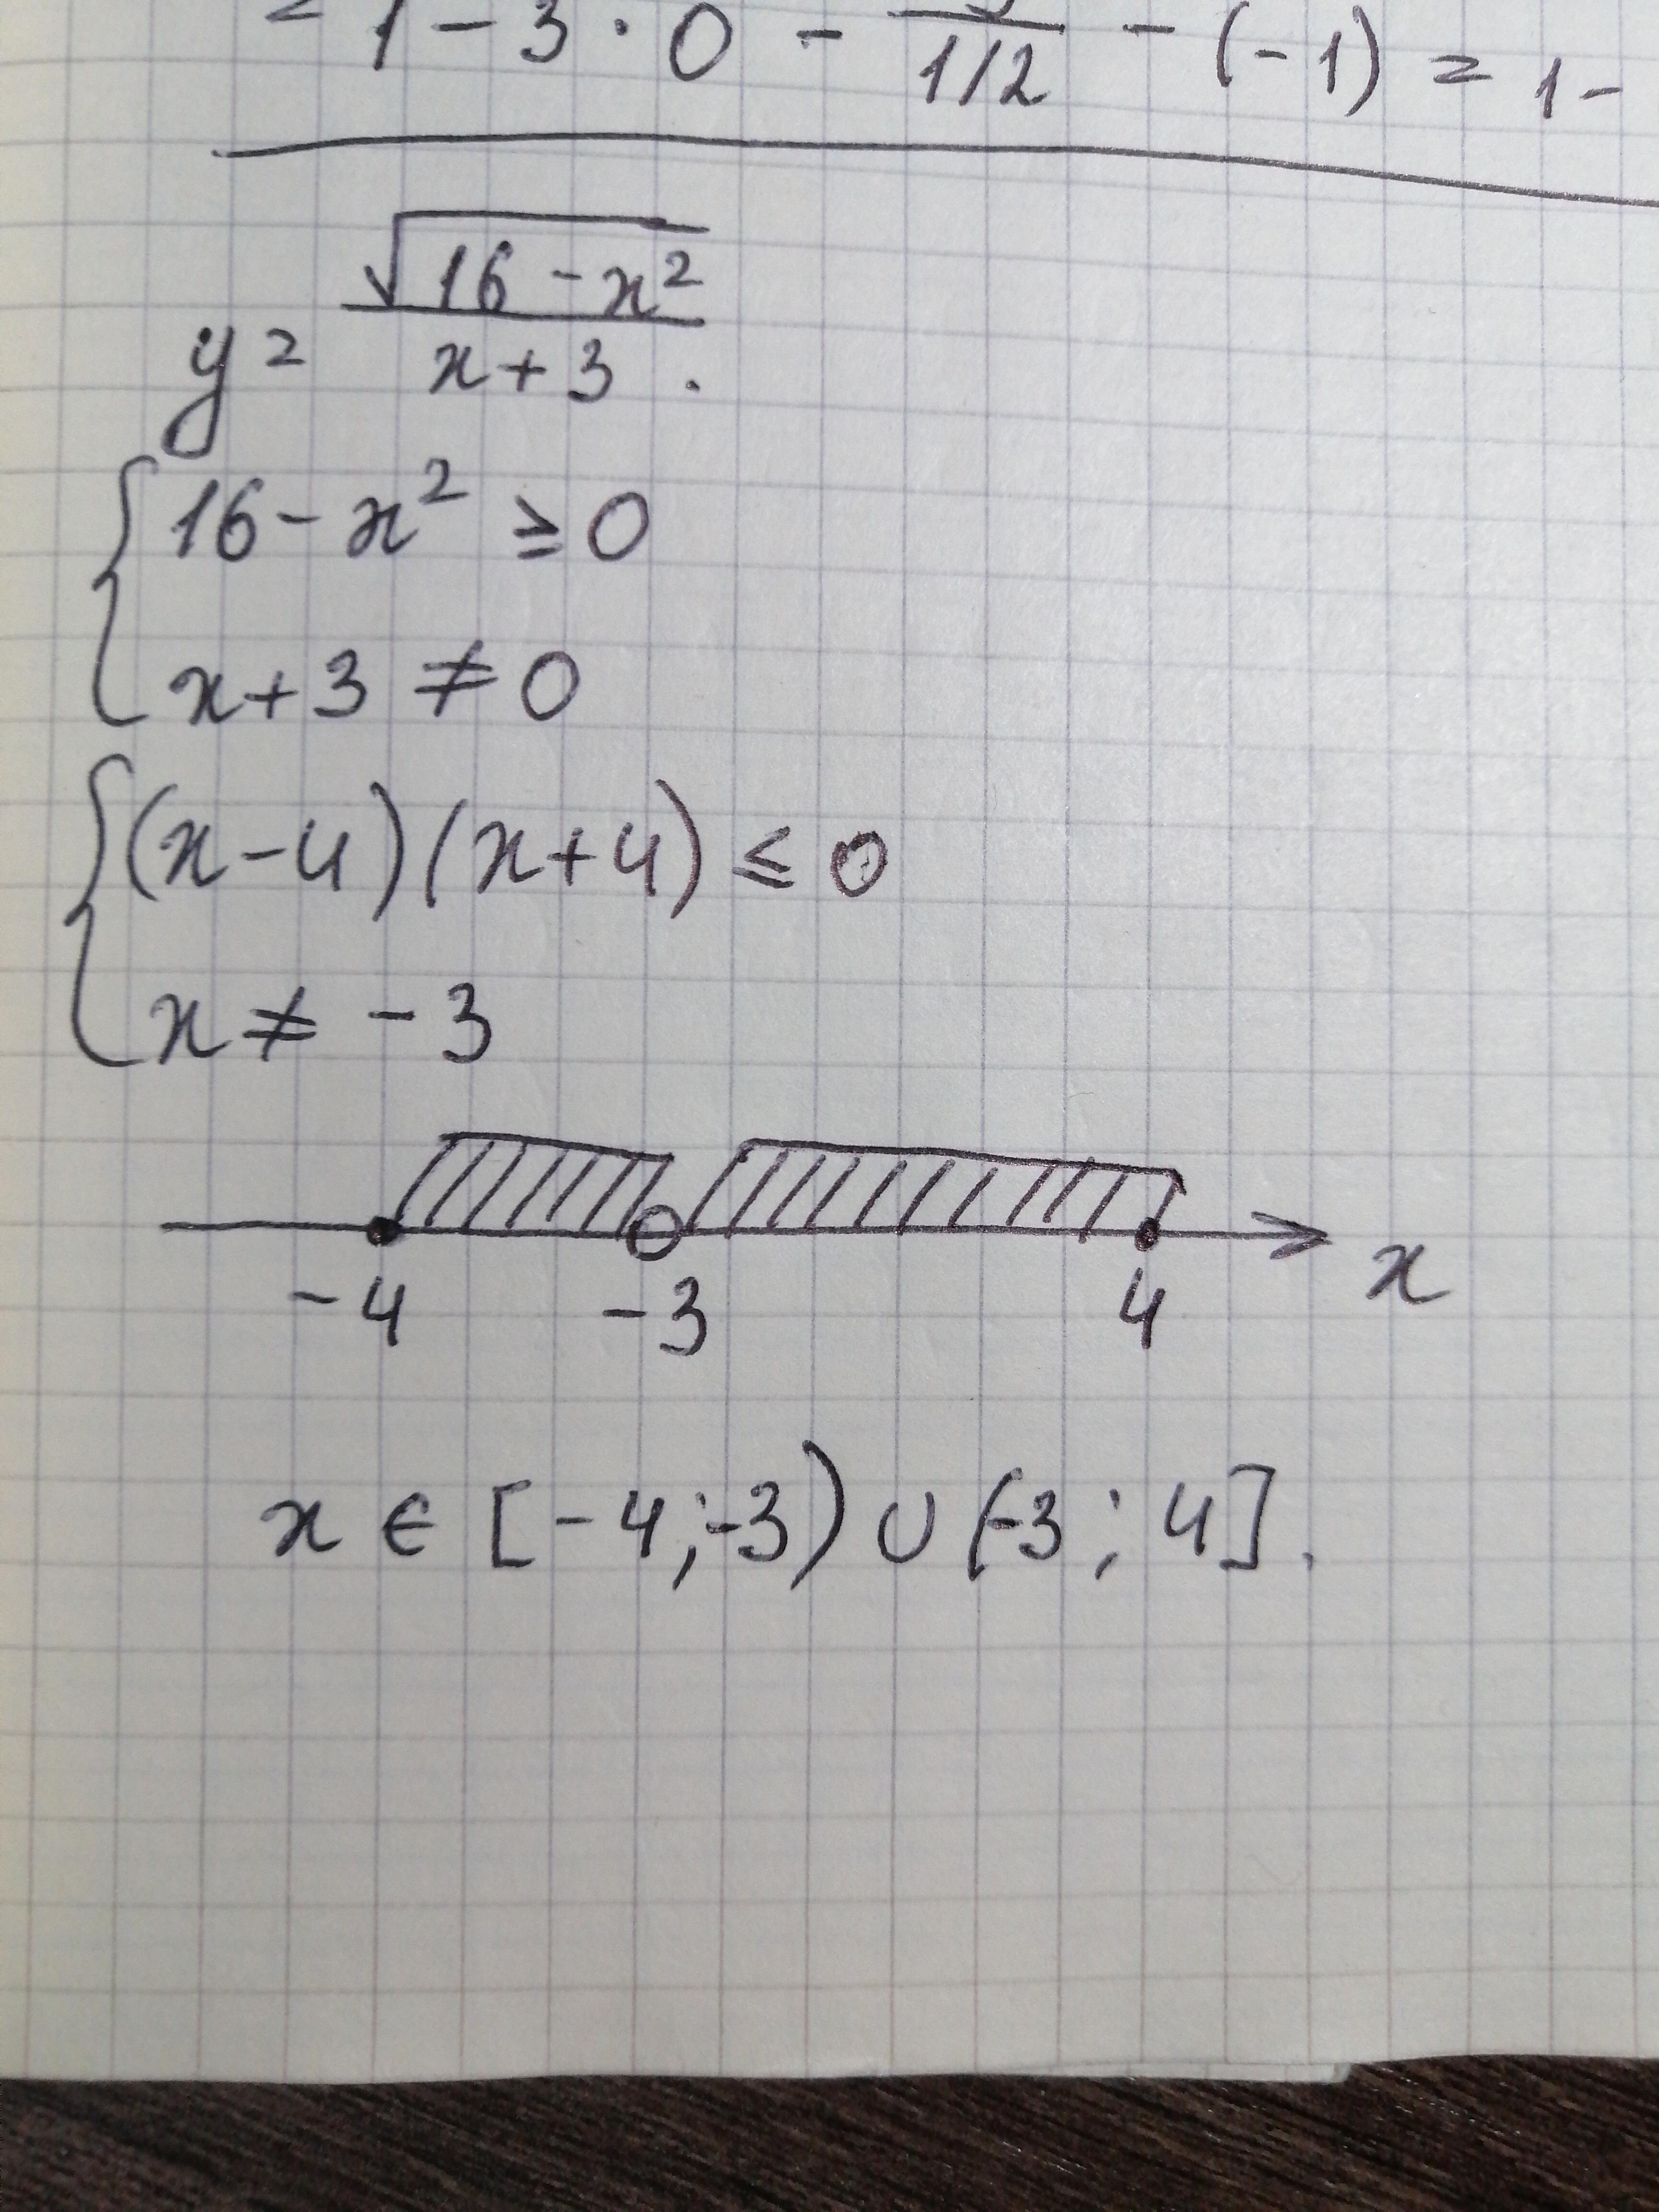 = 1 - 3 · 0 - / 1/2 - (-1) = 1 -
y = √(16 - x²) / x + 3 .
{ 16 - x² ≥ 0
x + 3 ≠ 0
{ (x - 4)(x + 4) ≤ 0
x ≠ -3
-4 -3 4 x
x ∈ [-4; -3) ∪ (-3; 4].